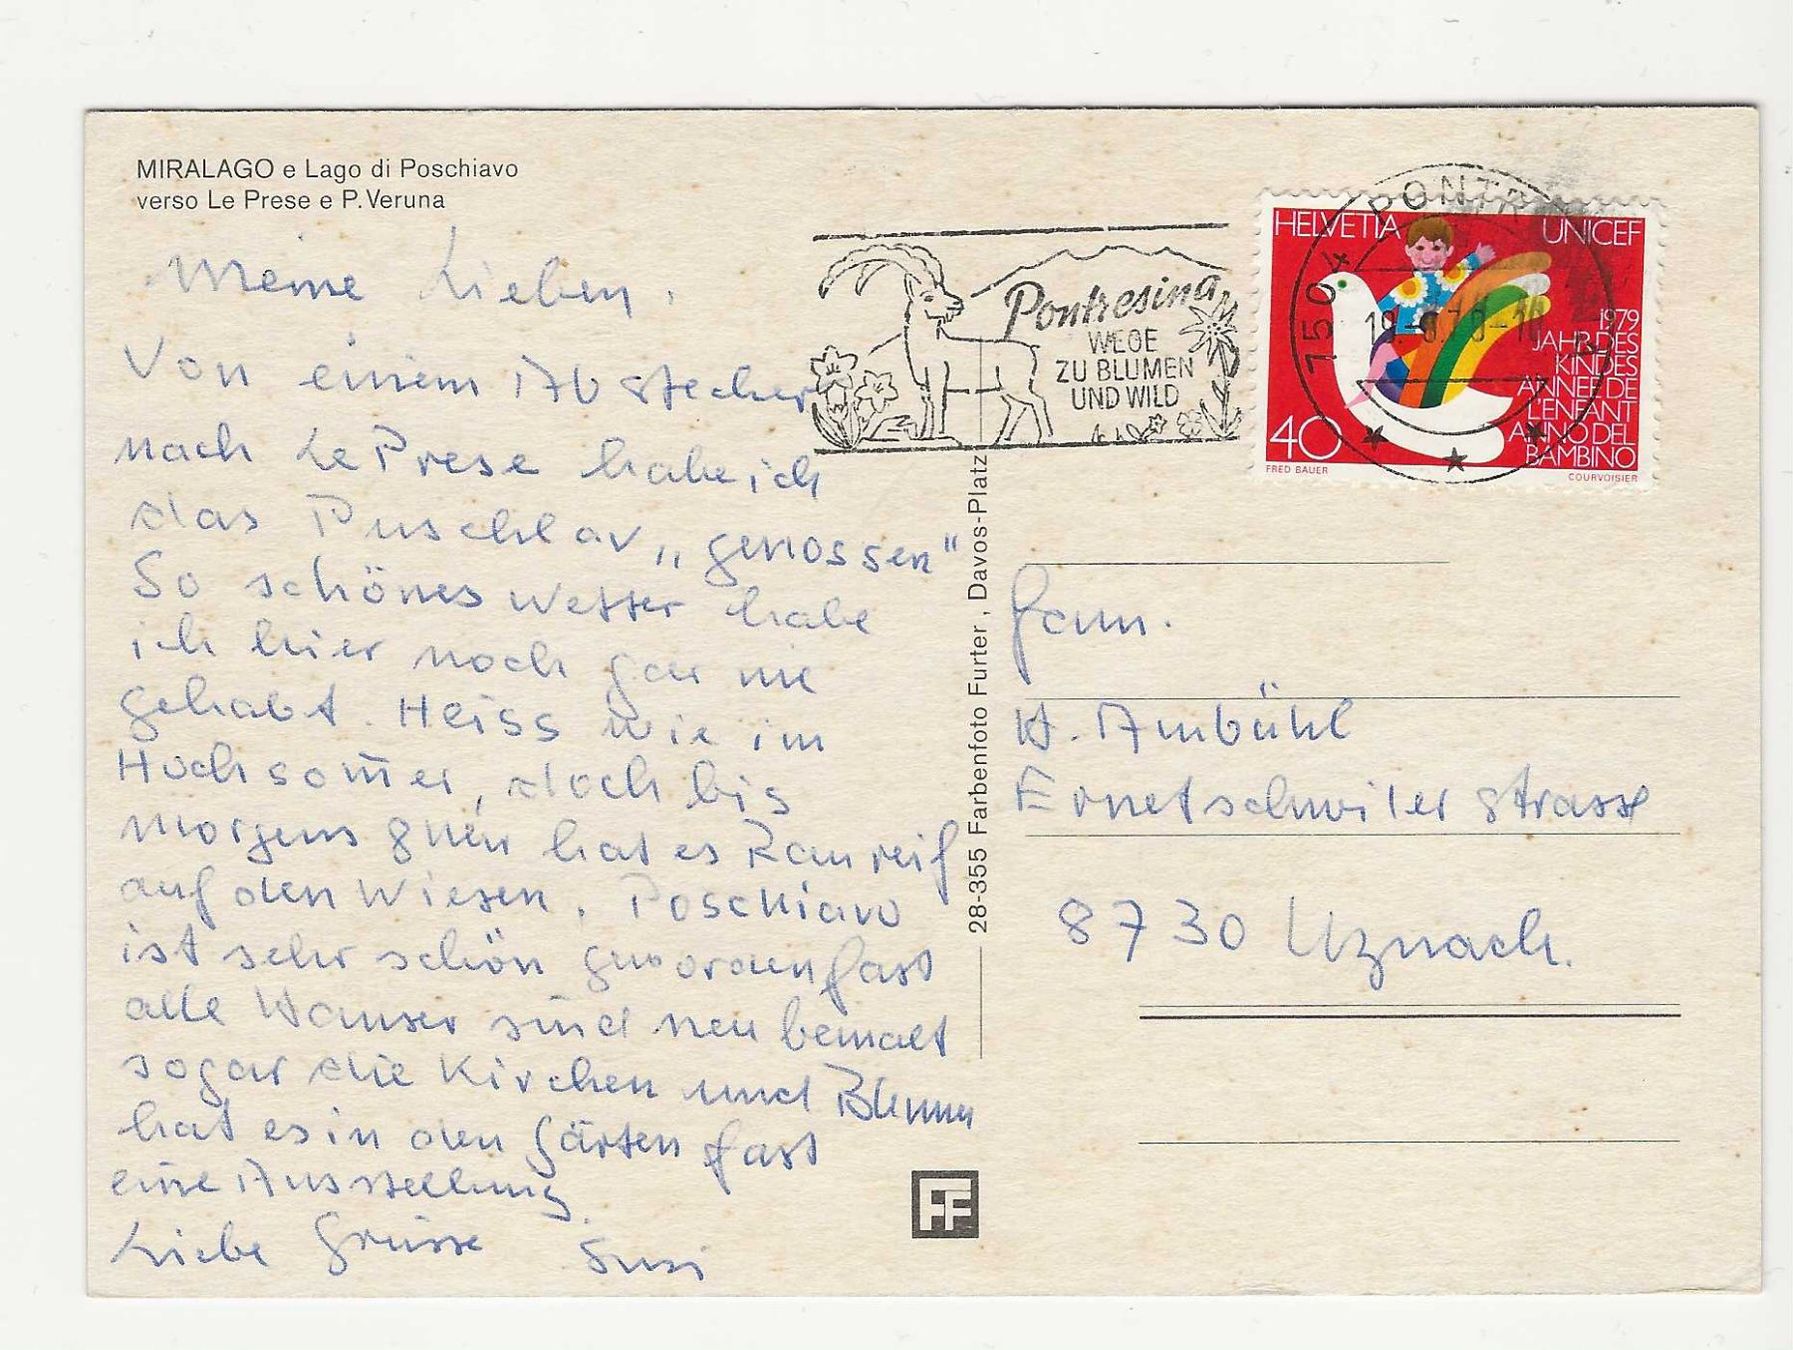 MIRALAGO e Lago di Poschiavo
verso Le Prese e P. Veruna
Meine Lieben,
Von einem Abstecher
nach Le Prese habe ich
das Puschlav „genossen"
So schönes Wetter habe
ich hier noch gar nie
gehabt. Heiss wie im
Hochsom̄er, doch bis
morgens 9 Uhr hat es Rauhreif
auf den Wiesen. Poschiavo
ist sehr schön geworden fast
alle Häuser sind neu bemalt
sogar die Kirchen und Blumen
hat es in den Gärten fast
eine Ausstellung.
Liebe Grüsse Susi
Pontresina
WEGE
ZU BLUMEN
UND WILD
7504 PONTR
HELVETIA UNICEF
1979
JAHR DES
KINDES
ANNEE DE
L'ENFANT
ANNO DEL
BAMBINO
40
FRED BAUER COURVOISIER
28-355 Farbenfoto Furter, Davos-Platz
Fam.
H. Ambühl
Ernetschwilerstrasse
8730 Uznach.
FF